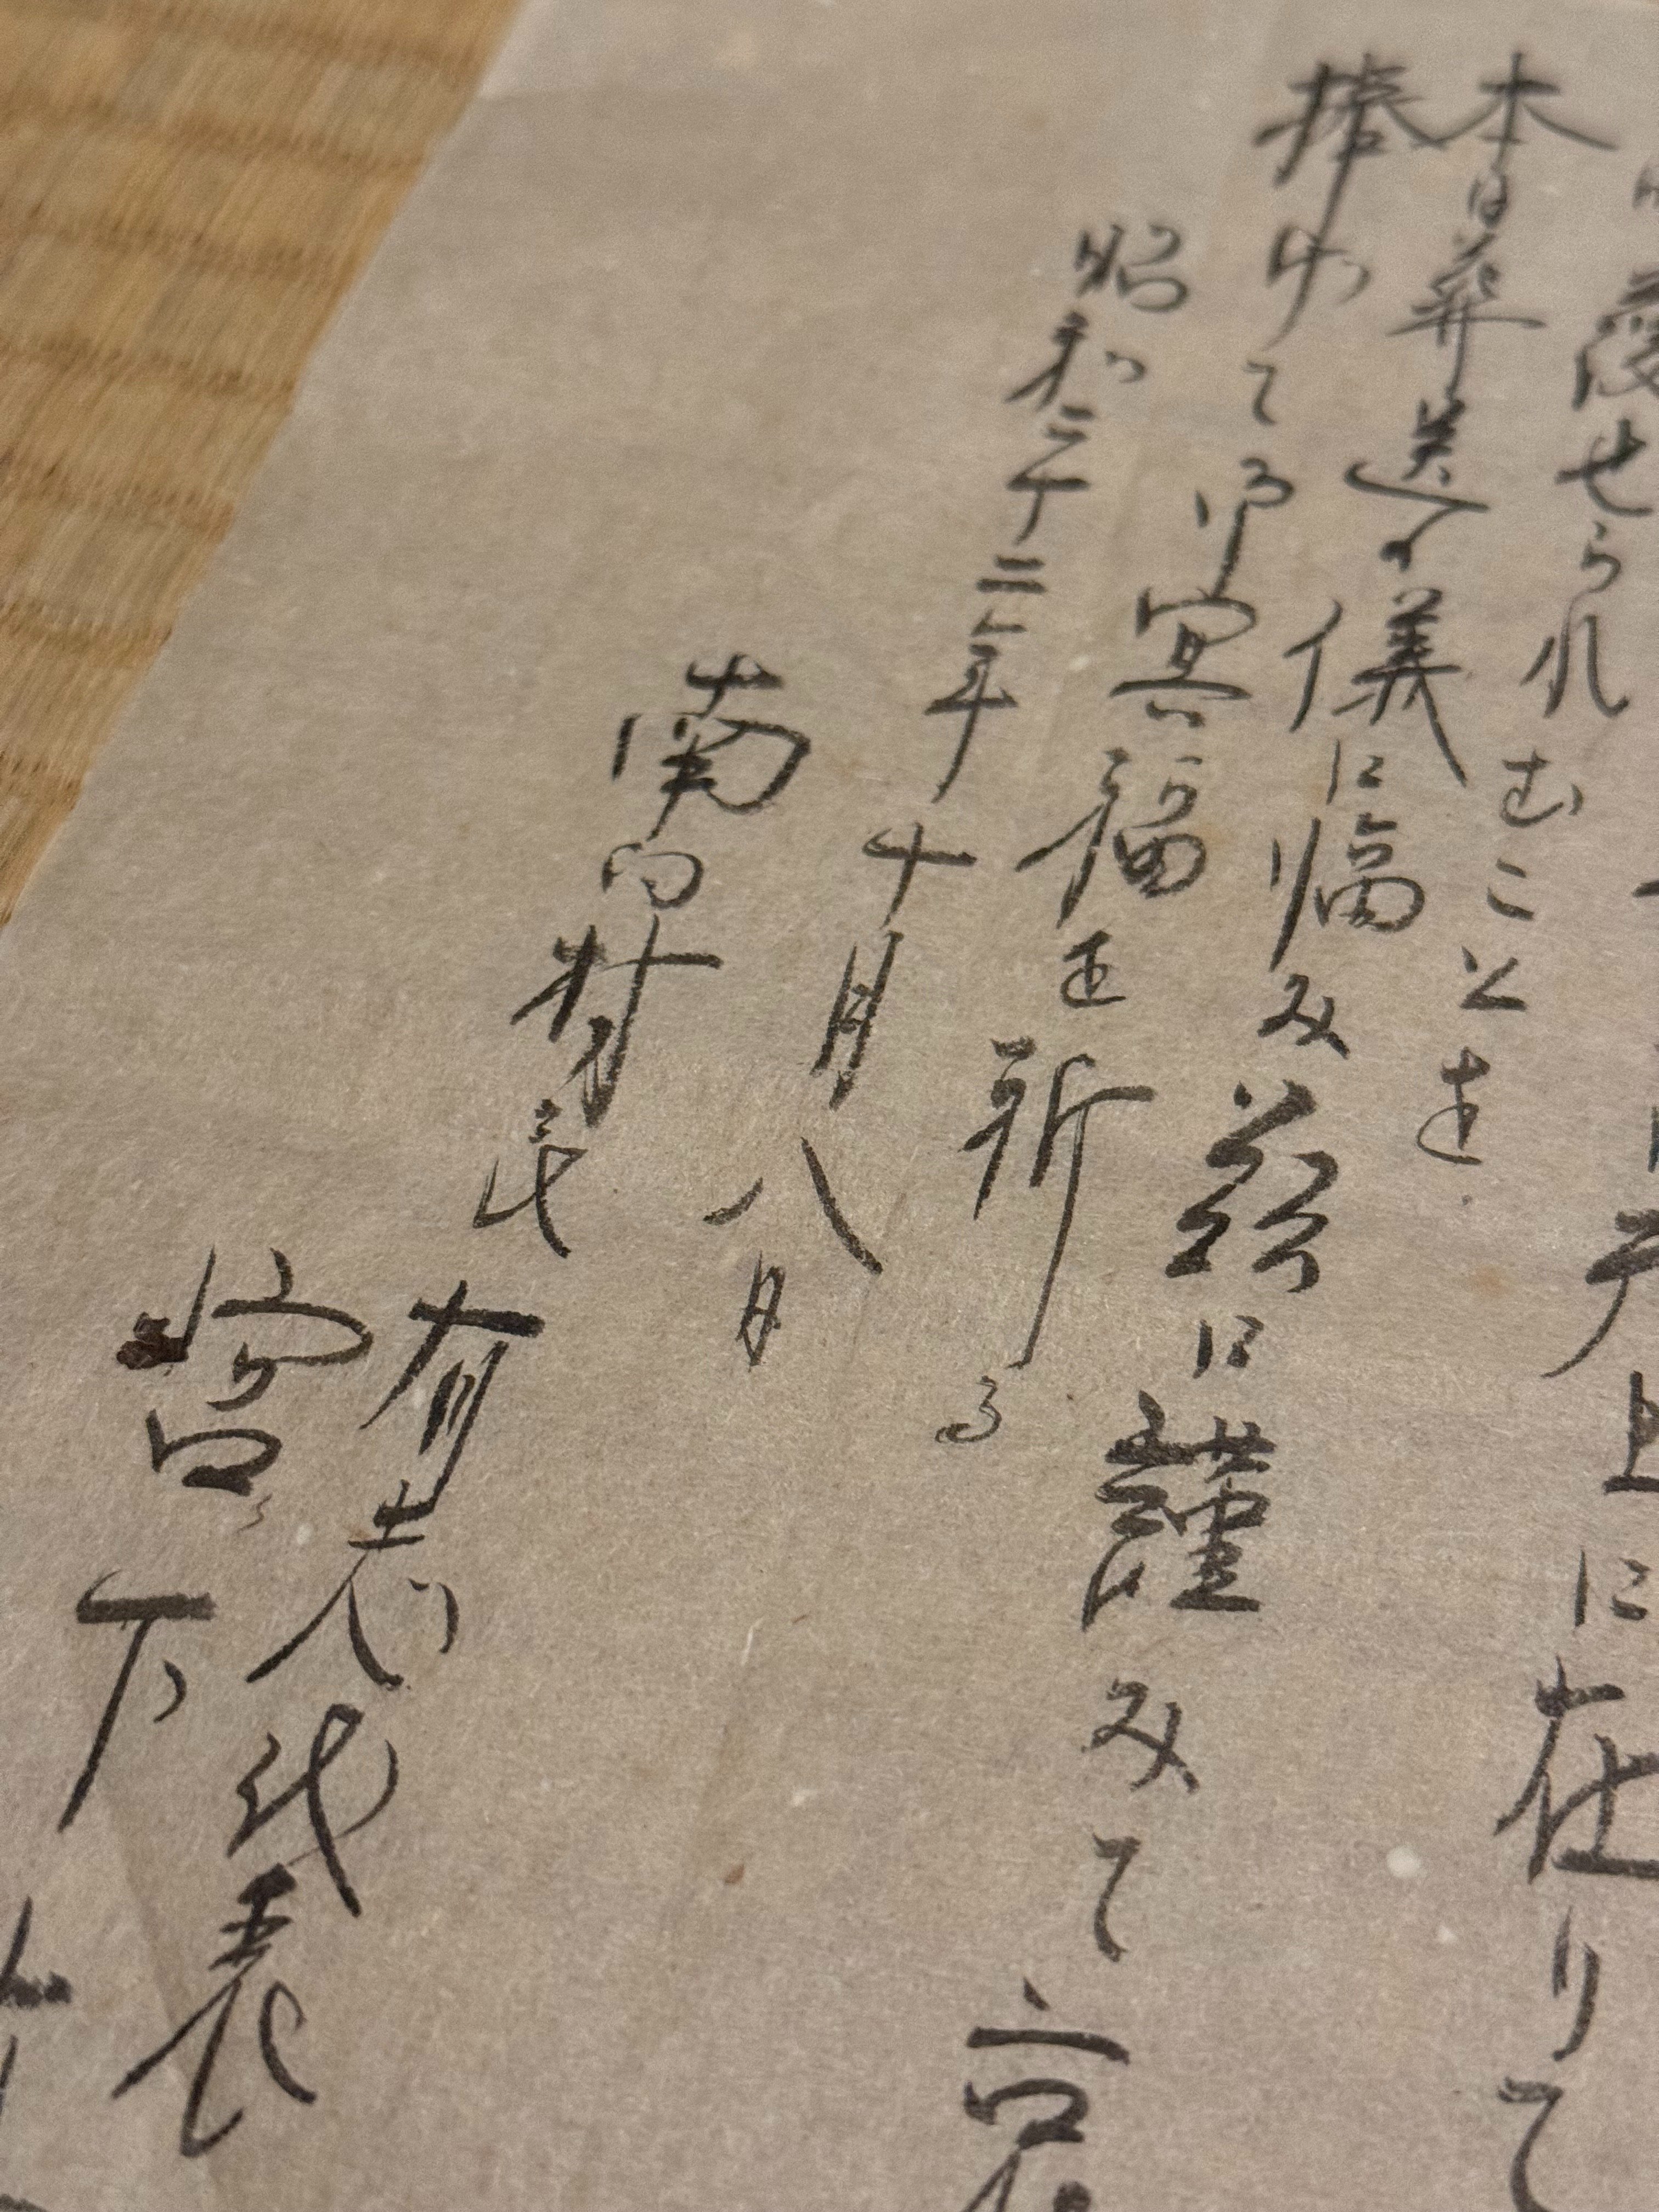 上に在りて
護せられむことを
本日葬送の儀に臨み茲に謹みて言
捧げて御冥福を祈る
昭和二十二年十月八日
南向村民
有志代表
宮下